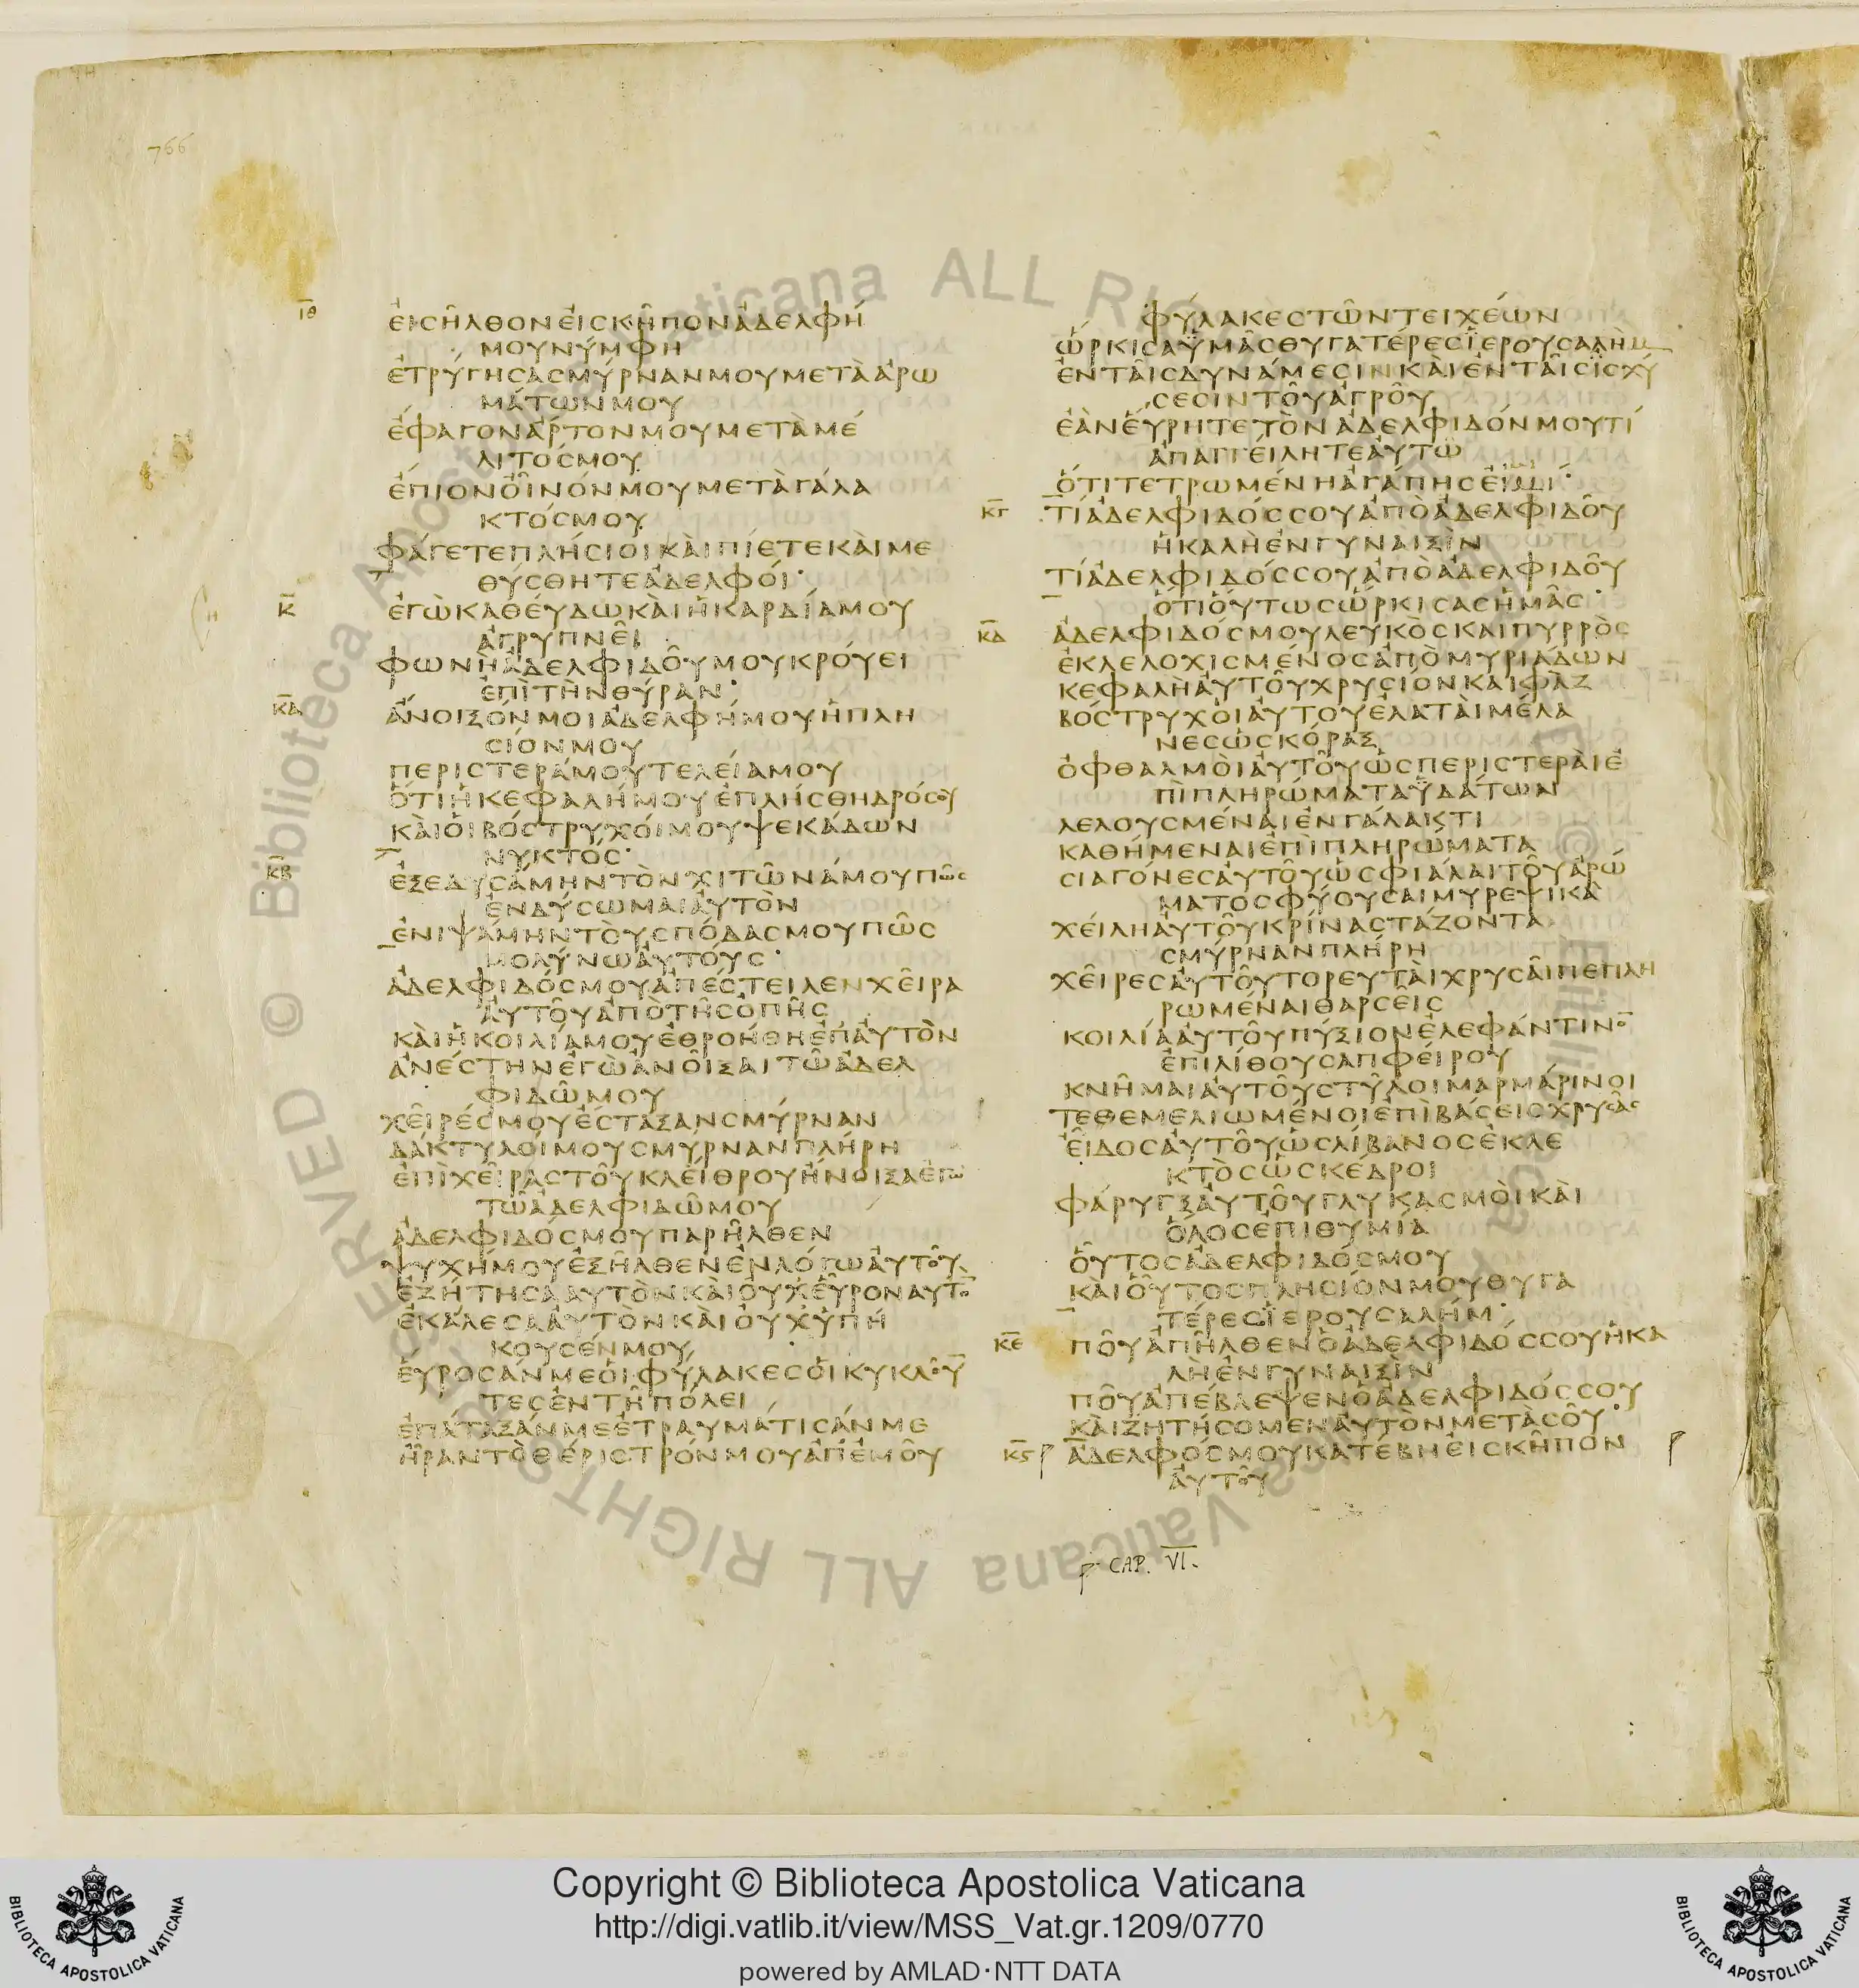 766
ΙΘ
ἐισῆλθονἐισκῆπονἀδελφή
μουνύμφη
ἐτρύγησασμύρνανμουμετὰἀρω
μάτωνμου
ἐφαγονἄρτονμουμετὰμέ
λιτόσμου
ἐπιονὀῖνόνμουμετὰγάλα
κτόσμου
φάγετεπλήσιοικὰιπίετεκὰιμε
θύσθητεἀδελφόι·
Κ
ἐγὼκαθέυδωκὰιἡκαρδίαμου
ἀγρυπνεῖ
φωνὴἀδελφιδοῦμουκρόυει
ἐπὶτὴνθύραν·
ΚΑ
ἄνοιξόνμοιἀδελφήμουἡπλη
σίονμου
περιστεράμουτελείαμου
ὅτιἡκεφαλήμουἐπλήσθηδρόσου
κὰιὁιβόστρυχόιμουψεκάδων
νυκτός·
ΚΒ
ἐξεδυσάμηντὸνχιτῶνάμουπῶσ
ἐνδύσωμαιἀυτὸν
ἐνιψάμηντὸυσπόδασμουπῶσ
μολύνωἀυτόυσ·
ἀδελφιδόσμουἀπέστειλενχεῖρα
ἀυτοῦἀπὸτῆσὀπῆσ
κὰιἡκοιλίαμουἐθροήθηἐπἀυτὸν
ἀνέστηνἐγὼἀνοῖξαιτῶἀδελ
φιδῶμου
χεῖρέσμουἐστάξανσμύρναν
δάκτυλόιμουσμύρνανπλήρη
ἐπὶχεῖραστοῦκλέιθρουἤνοιξαἐγὼ
τῶἀδελφιδῶμου
ἀδελφιδόσμουπαρῆλθεν
ψυχήμουἐξῆλθενἐνλόγωἀυτοῦ
ἐζήτησαἀυτὸνκὰιὀυχἑῦροναυτο̅
ἐκάλεσαἀυτὸνκὰιὀυχὑπή
κουσένμου
ἑύροσάνμεὁιφύλακεσὁικυκλου̅
τεσἐντῆπόλει
ἐπάταξάνμεἐτραυμάτισάνμε
ἦραντὸθέριστρόνμουἀπἐμοῦ
φύλακεστῶντειχέων
ὥρκισαὑμᾶσθυγατέρεσϊερουσαλὴμ
ἐνταῖσδυνάμεσινκὰιἐνταῖσἰσχύ
σεσιντοῦἀγροῦ
ἐὰνἕυρητετὸνἀδελφιδόνμουτί
ἀπαγγέιλητεἀυτῶ
ὅτιτετρωμένηἀγάπησἐιμι·
ΚΓ
τίἀδελφιδόσσουἀπὸἀδελφιδοῦ
ἡκαλὴἐνγυναιξὶν
τίἀδελφιδόσσουἀπὸἀδελφιδοῦ
ὅτιὅυτωσὥρκισασἡμᾶσ·
ΚΔ
ἀδελφιδόσμουλευκὸσκαιπυρρὸσ
ἐκλελοχισμένοσἀπὸμυριάδων
κεφαλὴἀυτοῦχρυσίονκαιφὰζ
βόστρυχοιἀυτουἐλαταὶμέλα
νεσὡσκόραξ
ὀφθαλμὸιἀυτοῦὡσπεριστερὰιἐ
πὶπληρώματαὑδάτων
λελουσμέναιἐνγάλακτι
καθήμεναιἐπὶπληρώματα
σιαγόνεσἀυτοῦὡσφιάλαιτοῦἀρώ
ματοσφύουσαιμυρεψικὰ
χέιληἀυτοῦκρίναστάζοντα
σμύρνανπλήρη
χεῖρεσἀυτοῦτορευτὰιχρυσᾶιπεπλη
ρωμέναιθαρσεῖσ
κοιλίαἀυτοῦπύξιονἐλεφάντινο̅
ἐπιλίθουσαπφέιρου
κνῆμαιἀυτοῦστῦλοιμαρμάρινοι
τεθεμελιωμένοιἐπὶβάσεισχρυσᾶσ
ἐῖδοσἀυτοῦὡσλίβανοσἐκλε
κτὸσὡσκέδροι
φάρυγξἀυτοῦγλυκασμὸικὰι
ὅλοσἐπιθυμία
ὅυτοσἀδελφιδόσμου
κὰιὅυτοσπλησίονμουθυγα
τέρεσϊερουσαλήμ·
ΚΕ
ποῦἀπῆλθενὁἀδελφιδόσσουἡκα
λὴἐνγυναιξὶν
ποῦἀπέβλεψενὁἀδελφιδόσσου
κὰιζητήσομενἀυτὸνμετὰσοῦ·
ΚϚ
ἀδελφόσμουκατέβηἐισκῆπον
ἀυτοῦ
CAP. VI.
Copyright © Biblioteca Apostolica Vaticana
http://digi.vatlib.it/view/MSS_Vat.gr.1209/0770
powered by AMLAD·NTT DATA
BIBLIOTECA APOSTOLICA VATICANA
BIBLIOTECA APOSTOLICA VATICANA